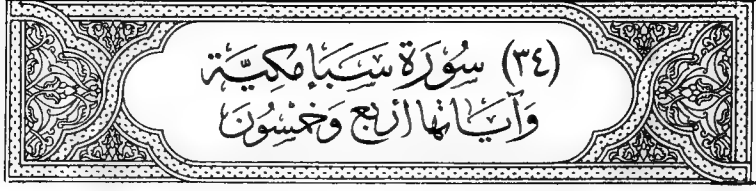 (٣٤) سُورَة سَبَإ مَكِيَّة
وَآيَاتهَا أَرْبَع وَخَمْسُونَ